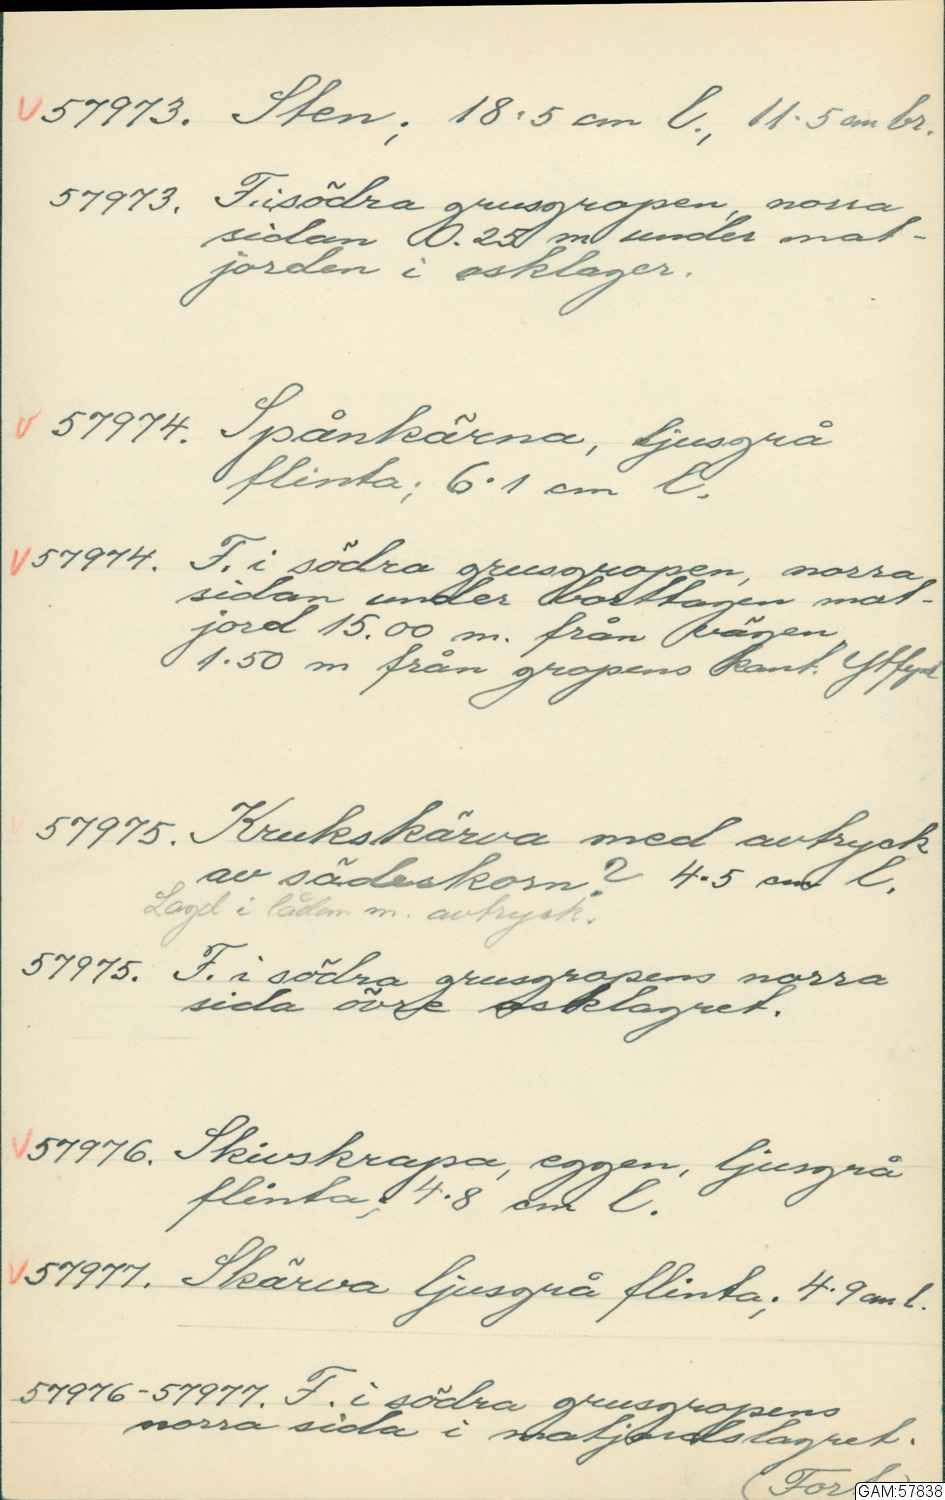 V 57973. Sten; 18.5 cm l., 11.5 cm br.
57973. F. i södra grusgropen, norra
sidan 0.25 m under mat-
jorden i asklager.
V 57974. Spånkärna, ljusgrå
flinta; 6.1 cm l.
V 57974. F. i södra grusgropen, norra
sidan under borttagen mat-
jord 15.00 m. från vägen,
1.50 m från gropens kant. Ytfynd
57975. Krukskärva med avtryck
av sädeskorn? 4.5 cm l.
Lagd i lådan m. avtryck.
57975. F. i södra grusgropens norra
sida övre asklagret.
V 57976. Skivskrapa, eggen, ljusgrå
flinta; 4.8 cm l.
V 57977. Skärva ljusgrå flinta; 4.9 cm l.
57976-57977. F. i södra grusgropens
norra sida i matjordslagret.
GAM:57838